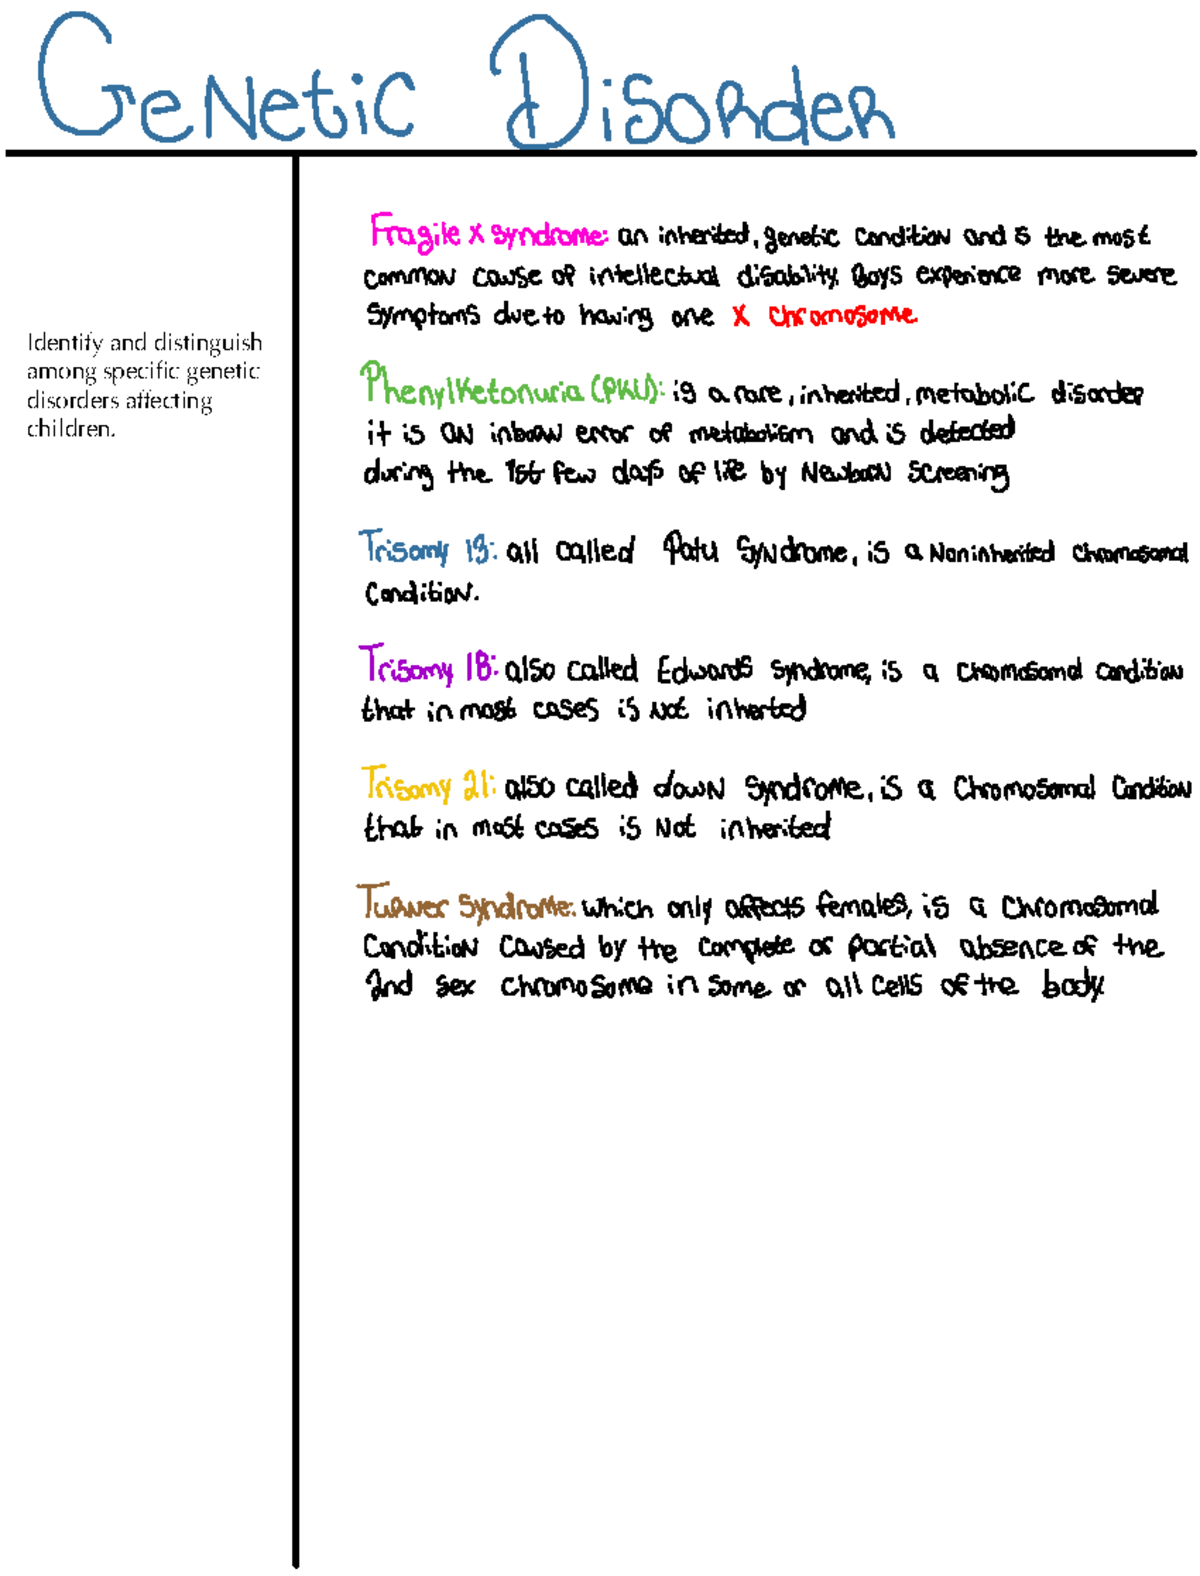 Genetic Disorder
Identify and distinguish
among specific genetic
disorders affecting
children.
Fragile X syndrome: an inherited, genetic condition and is the most
common cause of intellectual disability. Boys experience more severe
symptoms due to having one X chromosome.
Phenylketonuria (PKU): is a rare, inherited, metabolic disorder
it is an inborn error of metabolism and is detected
during the 1st few days of life by Newborn Screening
Trisomy 13: all called Patu Syndrome, is a Noninherited Chromosomal
Condition.
Trisomy 18: also called Edwards syndrome, is a chromosomal condition
that in most cases is not inherted
Trisomy 21: also called down syndrome, is a Chromosomal Condition
that in most cases is Not inherited
Turner Syndrome: which only affects females, is a Chromosomal
Condition Caused by the complete or partial absence of the
2nd sex chromosome in some or all cells of the body.